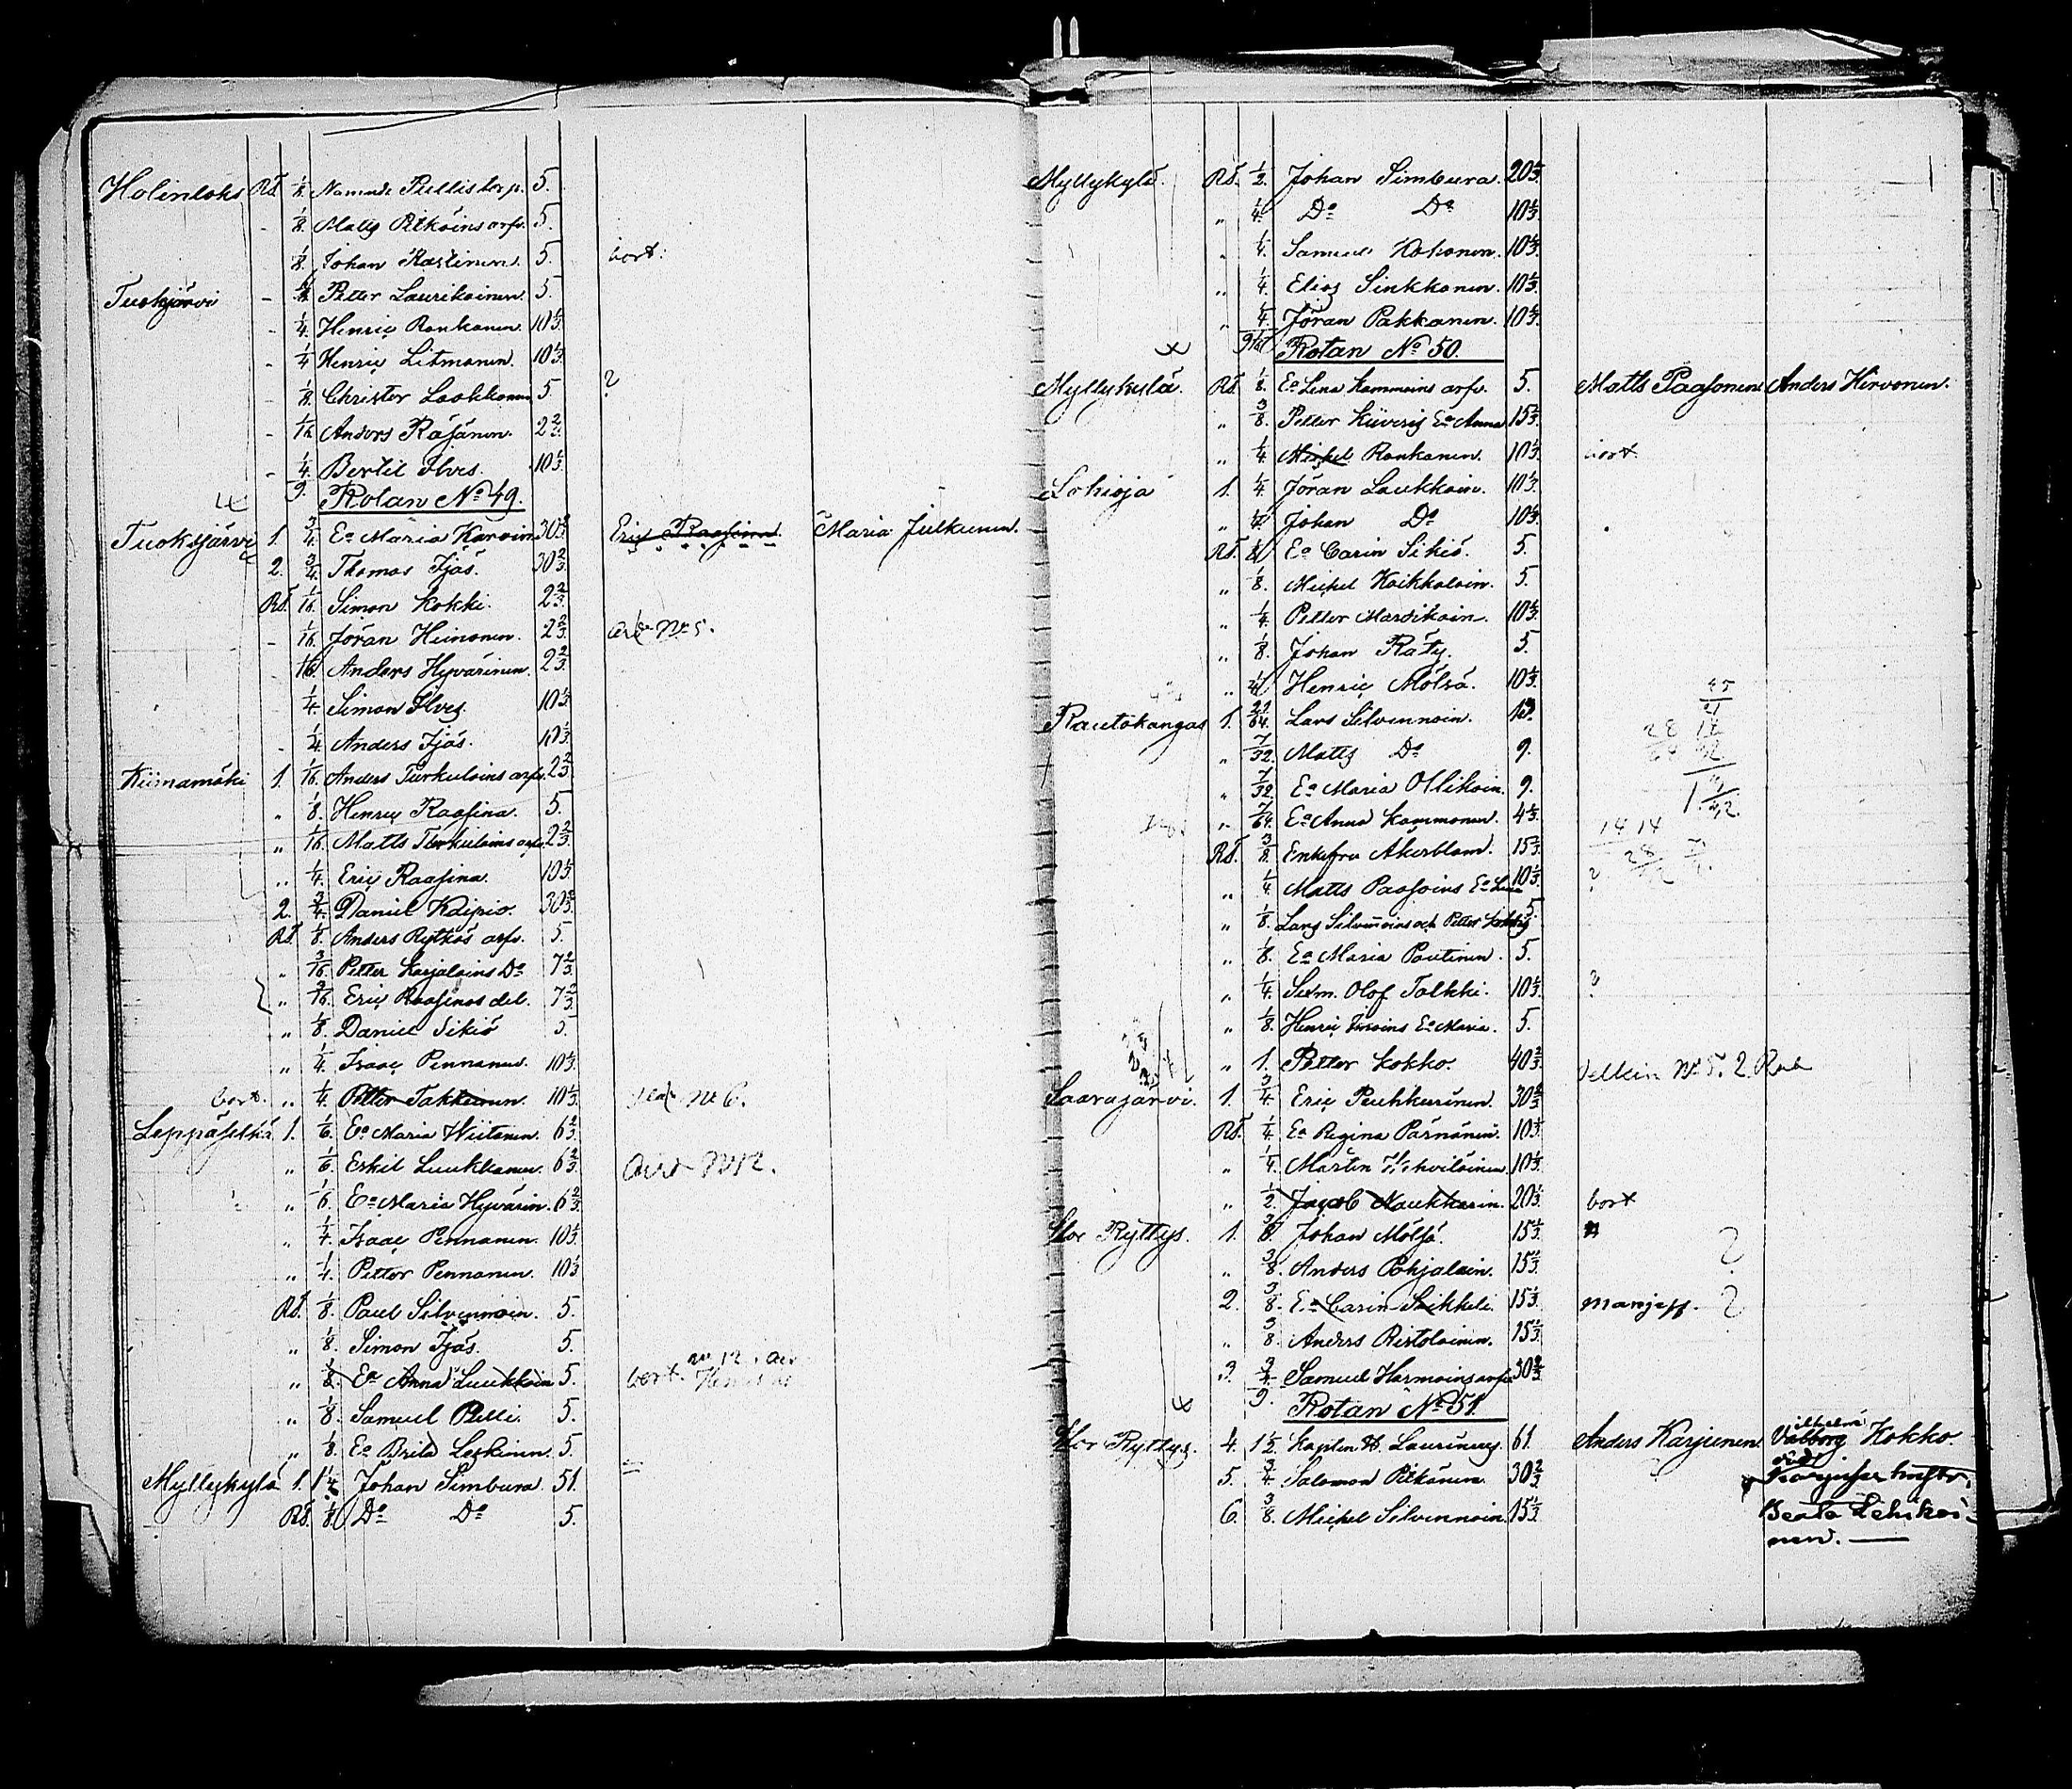 Holinloks Rś. 1/8. Namnde Pellis torp. 5.
- 1/8. Matts Pitkäins arfv. 5.
1/8. Johan Rastinen. 5. bort.
Tuoksjärvi - 1/8. Petter Laurikainen. 5.
- 1/4. Henric Ronkanen. 10 1/3.
- 1/4 Henric Litmanen. 10 1/3.
- 1/8. Christer Laakkonen 5 ?
- 1/16 Anders Räsänen. 2 2/3.
- 1/4. Bertil Ilves. 10 1/3.
9. Rotan No 49.
Tuoksjärvi 1. 3/4. Ea Maria Karvin. 30 2/3. Eric Raasina. Maria Julkunen.
2. 3/4. Thomas Ijäs. 30 2/3.
Rś. 1/16. Simon Kokki. 2 2/3.
- 1/16. Jöran Heinonen. 2 2/3. No 5.
1/16. Anders Hyvärinen. 2 2/3.
1/4. Simon Ilves. 10 1/3.
- 1/4. Anders Ijäs. 10 1/3.
Kiinamäki 1. 1/16. Anders Turkulains arfv. 2 2/3
" 1/8. Henric Raasina. 5.
" 1/16. Matts Turkulains arfv. 2 2/3
" 1/4. Eric Raasina. 10 1/3
2. 3/4. Daniel Kaipio. 30 2/3.
Rś. 1/8. Anders Rytkös arfv. 5.
" 3/16. Petter Karjalains Do 7 2/3
" 3/16. Eric Raasinas del. 7 2/3.
" 1/8. Daniel Sikiö 5.
" 1/4. Isaac Pennanen. 10 1/3.
bort. " 1/4. Petter Takkinen. 10 1/3. No 6.
Leppäselkä 1. 1/6. Ea Maria Wiitanen. 6 2/3.
" 1/6. Eskil Luukkanen. 6 2/3. No 12.
" 1/6. Ea Maria Hyvärin. 6 2/3.
" 1/4. Isaac Pennanen. 10 1/3.
" 1/4. Petter Pennanen. 10 1/3
Rś. 1/8. Paul Silvennoin. 5.
" 1/8. Simon Ijäs. 5.
" 1/8. Ea Anna Luukkain 5. bort.
" 1/8. Samuel Pelli. 5.
" 1/8. Ea Brita Leskinen. 5.
Myllykylä 1. 1 1/4 Johan Simbura. 51.
Rś. 1/8. Do Do 5.
Myllykylä. Rś. 1/2. Johan Simbura. 20 1/3.
" 1/4. Do Do 10 1/3.
" 1/4. Samuel Kokonen. 10 1/3.
" 1/4. Elias Sinkkonen. 10 1/3.
" 1/4. Jöran Pakkanen. 10 1/3.
Rotan No 50.
Myllykylä. Rś. 1/8. Ea Lena Kammoins arfv. 5. Matts Paasonen Anders Hirvonen.
" 3/8. Petter Kiiveris Ea Anna 15 1/3.
" 1/4. Michel Ronkanen. 10 1/3. bort.
Lohioja 1. 1/4 Jöran Laukkain. 10 1/3.
" 1/4. Johan Do 10 1/3.
Rś. 1/8. Ea Carin Sikiö. 5.
" 1/8. Michel Kaikkolain. 5.
" 1/4. Petter Mardikain. 10 1/3.
" 1/8. Johan Räty. 5.
" 1/4. Henric Mölsä. 10 1/3.
Rautakangas 1. 21/64. Lars Silvennoin.
" 7/32. Matts Do 9.
" 7/32. Ea Maria Ollikain. 9.
" 7/64. Ea Anna Kammonen. 4 1/3.
Rś. 3/8. Enkefru Åkerblom. 15 1/3.
" 1/4. Matts Paasoins Ea Lena 10 1/3. ?
" 1/8. Lars Silvennoins och Petter 5
" 1/8. Ea Maria Pautinen. 5.
" 1/4. Olof Talkki. 10 1/3. ?
" 1/8. Henric Ea Maria. 5.
" 1. Petter Kokko. 40 2/3. No 5. 2
Saarajärvi. 1. 3/4. Eric Puhkurinen. 30 2/3.
Rś. 1/4. Ea Regina Pärnänen. 10 1/3.
" 1/4. Martin Wehviläinen. 10 1/3.
" 1/2. Jacob Naukkarin. 20 1/3. bort
Stor Ryttys. 1. 3/8. Johan Mölsä. 15 1/3. ?
" 3/8. Anders Pohjalain. 15 1/3.
2. 3/8. Ea Carin Seikkeli. 15 1/3. ?
" 3/8. Anders Ristolainen. 15 1/3.
3. 3/4. Samuel Harmoins arfv 30 2/3
9. Rotan No 51.
Stor Ryttys. 4. 1 1/2. Kapten H. Laurinus 61. Anders Karjunen. Kokko.
5. 3/4. Salomon Pitkänen. 30 2/3
6. 3/8. Michel Silvennoin. 15 1/3. Beata Lehikoi-
nen.